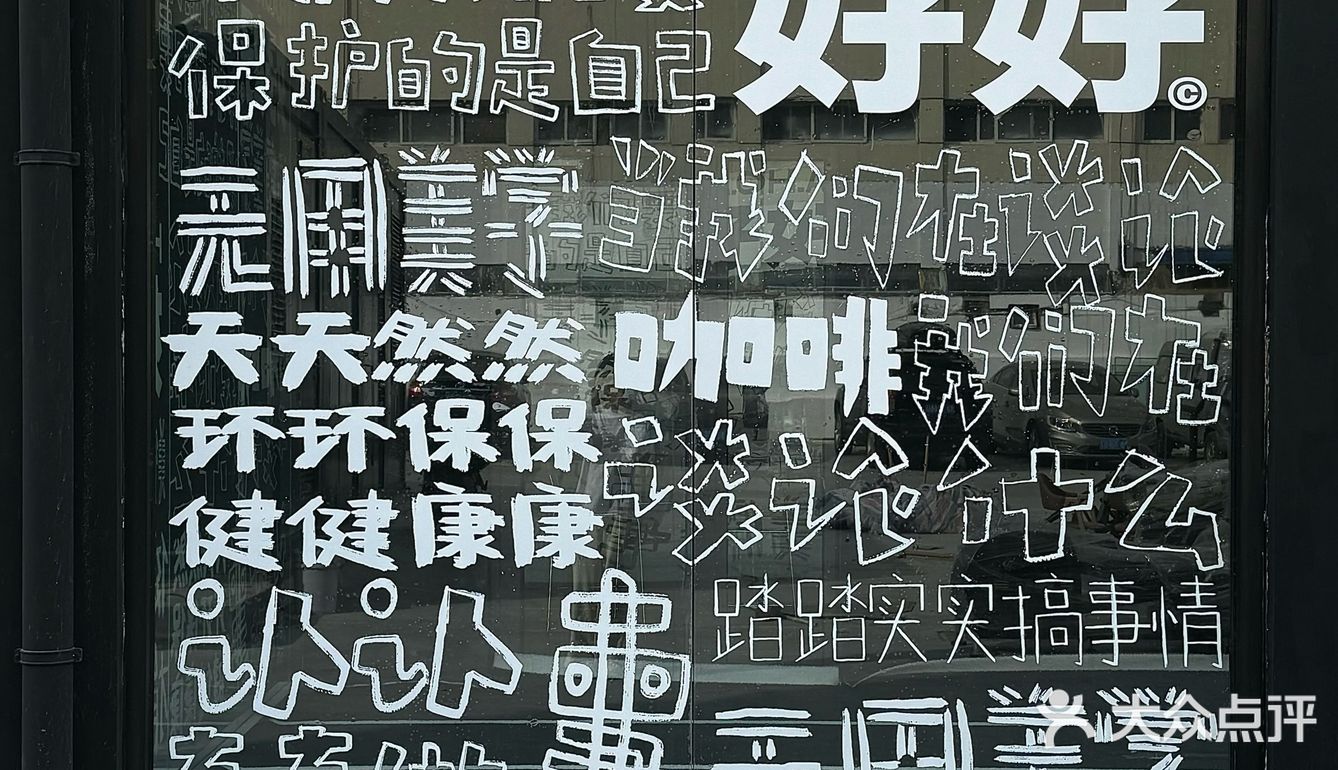 保护的是自己
好好©
无用美学
当我们在谈论
天天然然
咖啡
我们在
环环保保
谈论什么
健健康康
认认
踏踏实实搞事情
大众点评